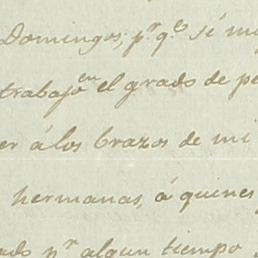 Domingos; p.r q.e sé mu
trabajo en el grado de pe
er á los brazos de mi
hermanas, á quines
ado p.r algun tiempo